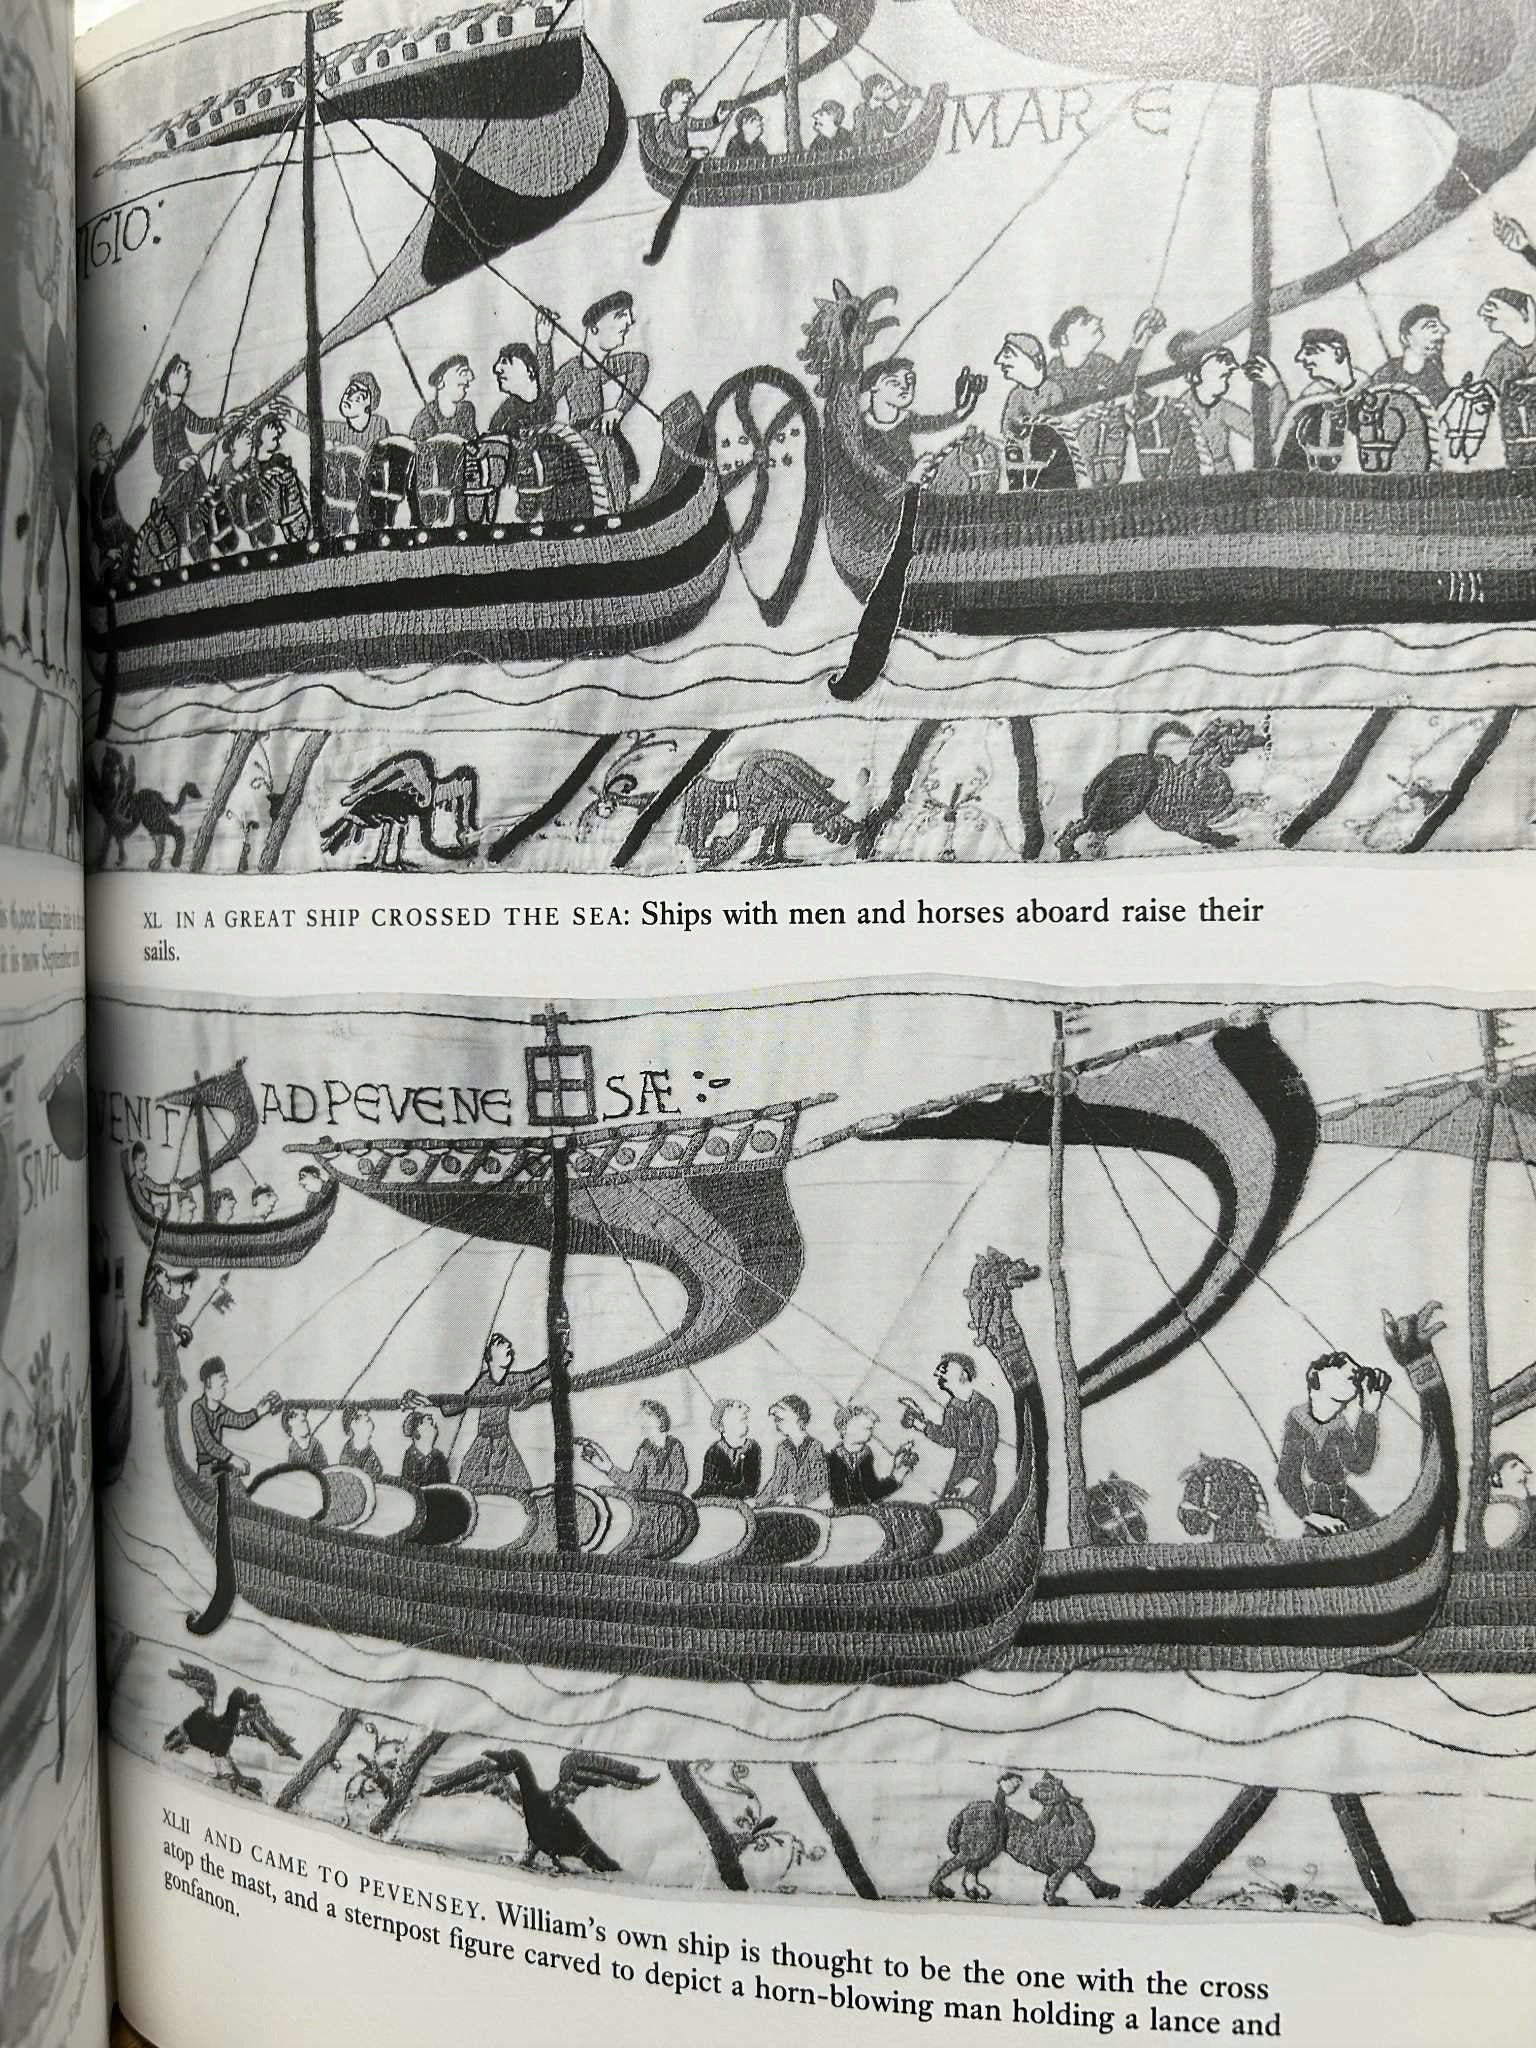 IGIO:
MARE
is 6,000 knights
it is now September
XL IN A GREAT SHIP CROSSED THE SEA: Ships with men and horses aboard raise their
sails.
VENIT AD PEVENE SÆ:-
XLII AND CAME TO PEVENSEY. William's own ship is thought to be the one with the cross
atop the mast, and a sternpost figure carved to depict a horn-blowing man holding a lance and
gonfanon.